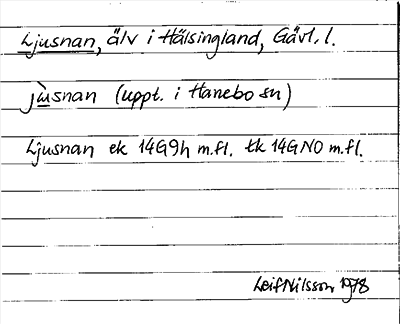 Ljusnan, älv i Hälsingland, Gävl. l.
jùsnan (uppt. i Hanebo sn)
Ljusnan ek 14G9h m.fl. tk 14GNO m.fl.
Leif Nilsson 1978